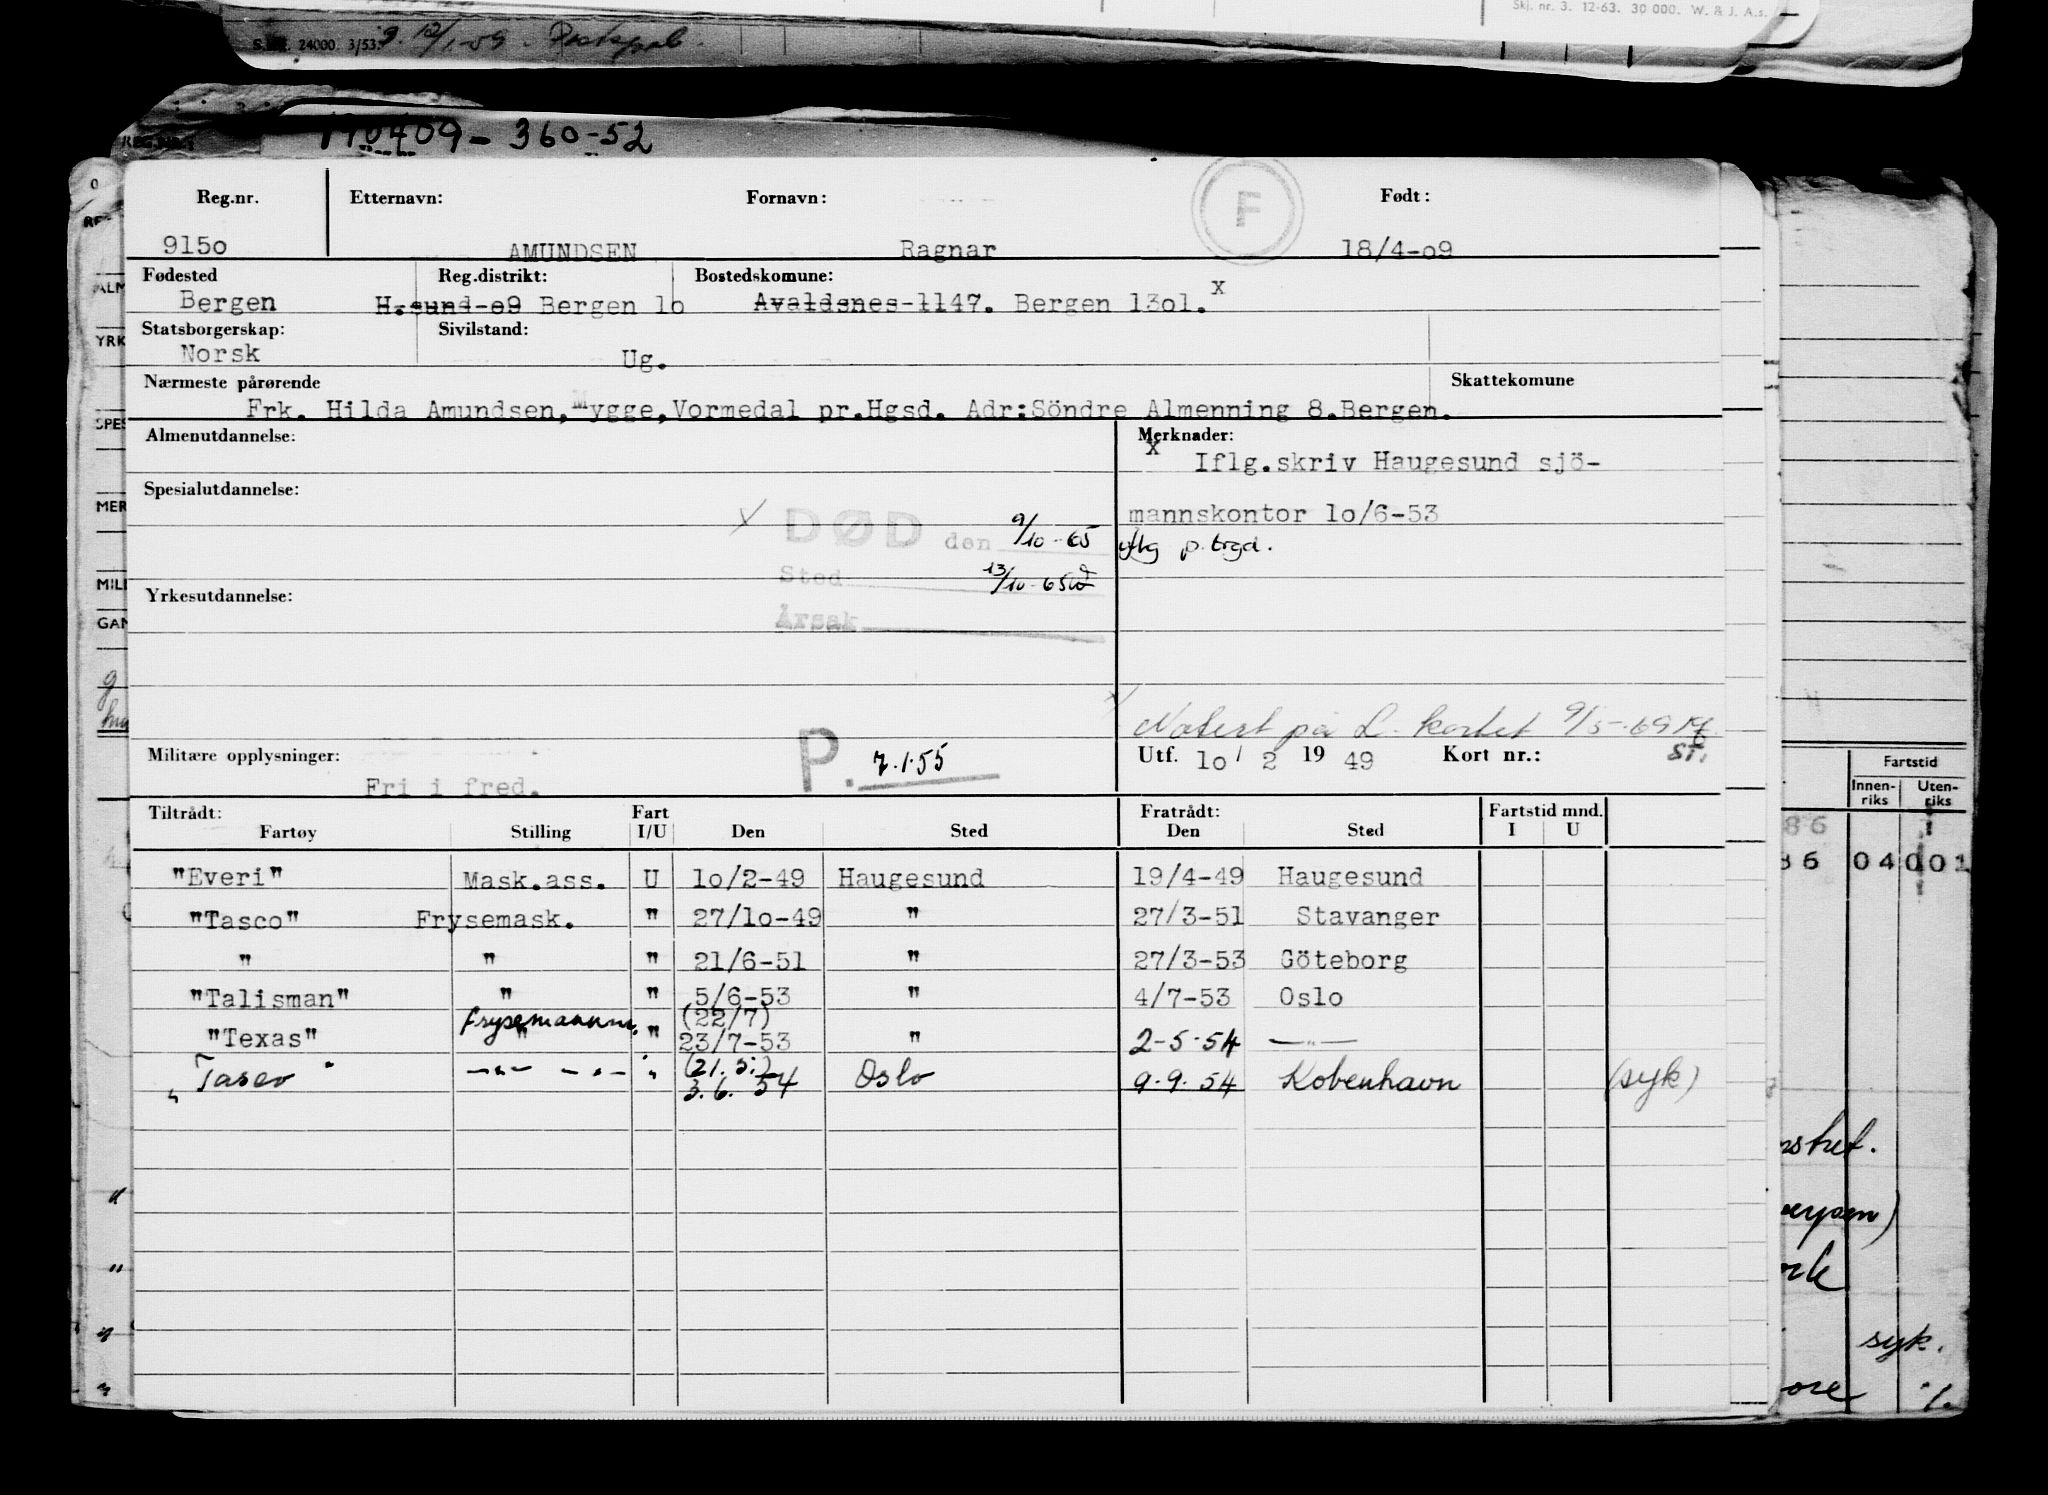 Skj. nr. 3. 12-63. 30 000. W. & J. A.s.
24000 3/53
190409-360-52
Reg.nr. Etternavn: Fornavn: F Født:
915o AMUNDSEN Ragnar 18/4-o9
Fødested Reg.distrikt: Bostedskomune:
Bergen H.sund-o9 Bergen lo Avaldsnes-1147. Bergen 13ol. x
Statsborgerskap: Sivilstand:
Norsk Ug.
Nærmeste pårørende Skattekomune
Frk. Hilda Amundsen, Mygge, Vormedal pr.Hgsd. Adr:Söndre Almenning 8.Bergen.
Almenutdannelse: Merknader:
x Iflg.skriv Haugesund sjö-
Spesialutdannelse:
mannskontor lo/6-53
DØD den 9/10-65 iflg p. brgd.
Sted 13/10-65
Yrkesutdannelse:
Årsak
Notert på L. kortet 9/5-69
Militære opplysninger: P. 7.1.55 Utf. lo / 2 19 49 Kort nr.: ST.
Fri i fred.
Tiltrådt: Fart Fratrådt: Fartstid mnd.
Fartøy Stilling I/U Den Sted Den Sted I U
"Everi" Mask.ass. U lo/2-49 Haugesund 19/4-49 Haugesund
"Tasco" Frysemask. " 27/lo-49 " 27/3-51 Stavanger
" " " 21/6-51 " 27/3-53 Göteborg
"Talisman" " " 5/6-53 " 4/7-53 Oslo
frysemaskm. (22/7)
"Texas" " " 23/7-53 " 2-5-54 —"—
(21.5.)
"Tasco" —"— —"— " 3.6.54 Oslo 9.9.54 Kobenhavn (syk)
Fartstid
Innen-riks Uten-riks
86 1
86 04 001
syk.